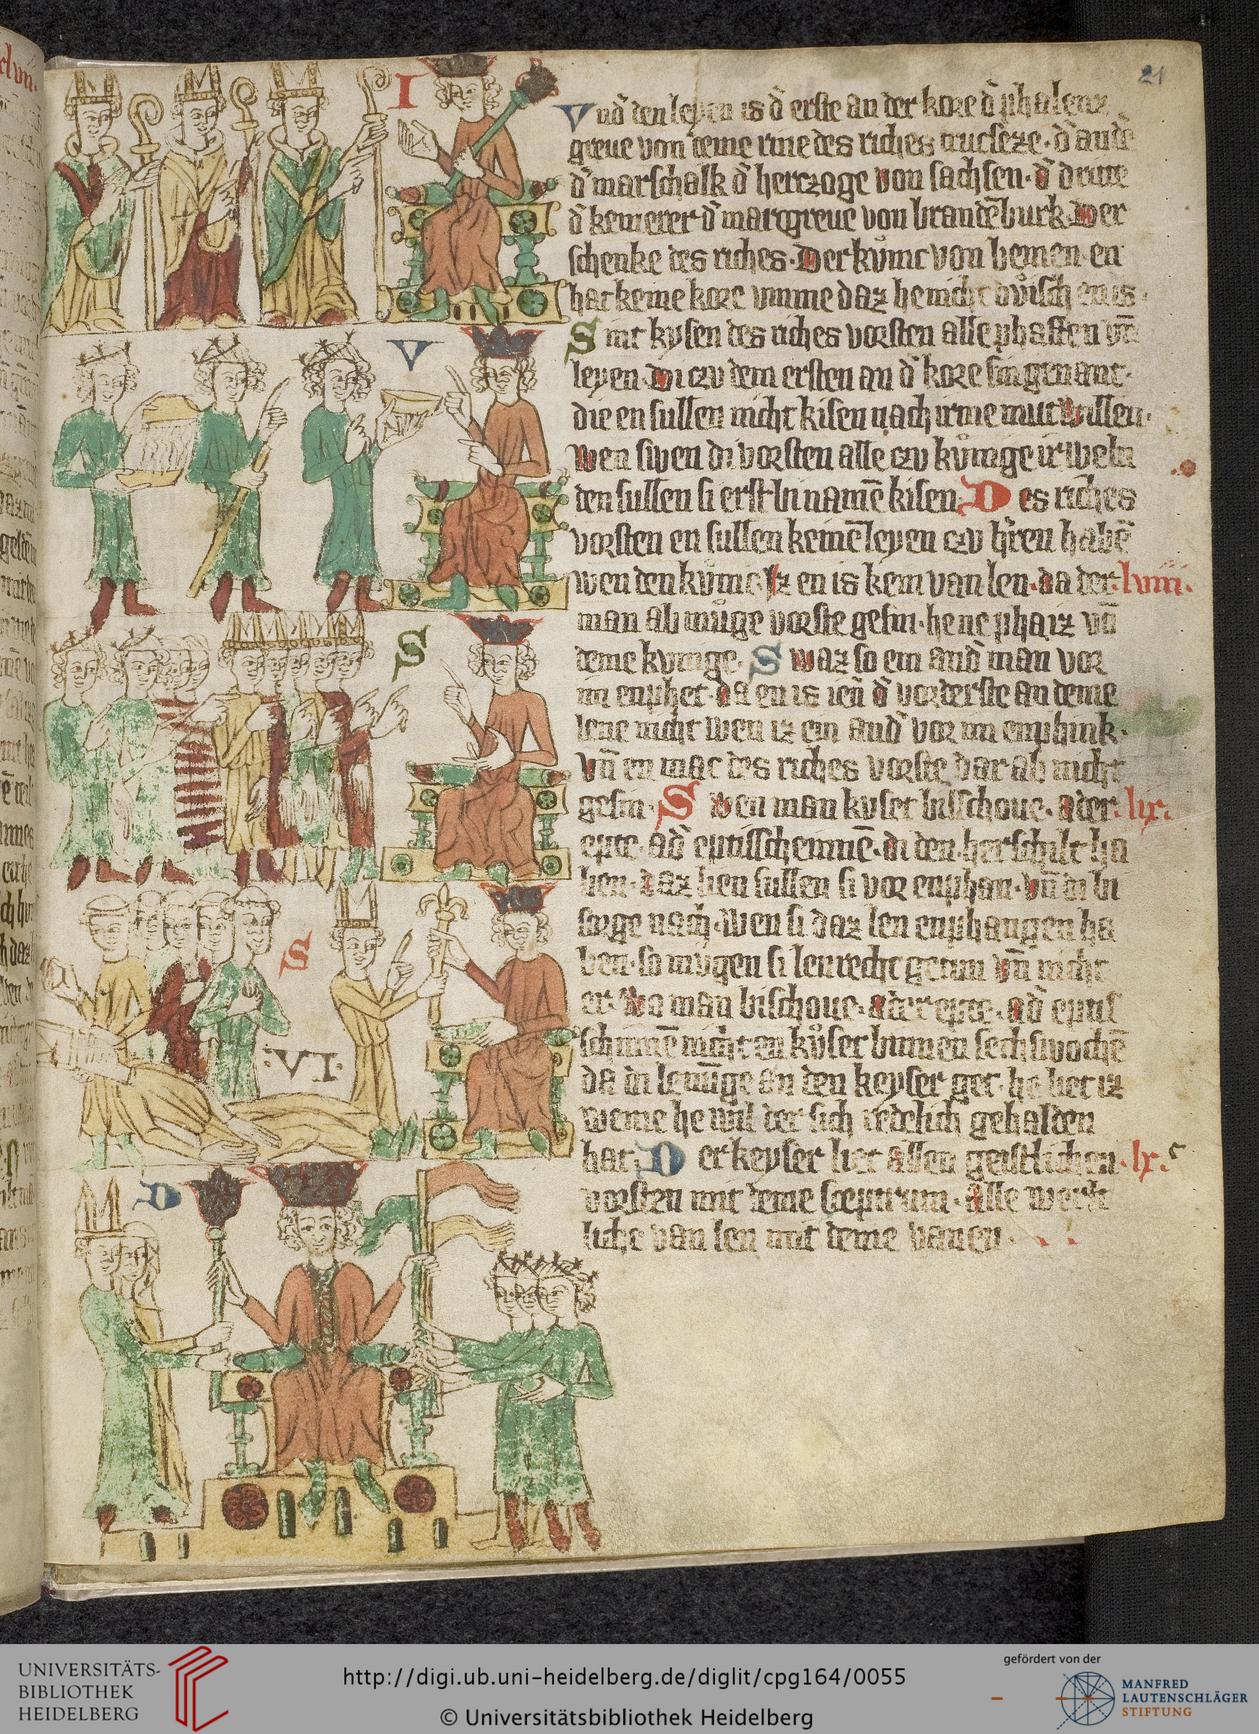 21
I
Vnd̄ den leyen is d̄ erste an der kore d̄ phalenz
greue von deme rine des riches trucseze · d̄ ande
d̄ marschalk d̄ herczoge von sachsen · d̄ dritte
d̄ kemerer d̄ marcgreue von brandēburk · Der
schenke des riches · Der kvͦnic von bemen · en
hat keine kore vmme daz he nicht dvͦtsch en is ·
Sint kysen des riches vorsten alle phaffen vn̄
leyen · Di czv dem ersten an d̄ kore sin genant ·
die en sullen nicht kisen nach irme mutwillen ·
Wen swen di vorsten alle czv kvͦnige irweln
den sullen si erst bi namē kisen · Des riches
vorsten en sullen keinē leyen czv h̄ren habē
wen den kvͦnic · Iz en is kein van len · da der · lviii ·
man ab mvͦge vorste gesin · he ne phaiz vō
deme kvnige · Swaz so ein and̄ man vor
im enphet · da en is ien̄ d̄ vorderste an deme
lene nicht wen iz ein and̄ vor im enphink ·
Vn̄ en mac des riches vorste dar ab nicht
gesin · Swen man kuset bisschoue · ader · lix ·
epte · ad̄ eptisschennē · di den herschilt ha
ben · daz lien sullen si vor enphan · vn̄ di bi
sorge nach · Wen si daz len enphangen ha
ben · so mvgen si lenrecht getun vn̄ nicht
er · Wo man bischoue · ader epte · ad̄ eptis
schinnē nicht en kvͦset binnen sechs wochē
da di lenunge an den keyser get · he liet iz
weme he wil der sich redelich gehalden
hat · Der keyser liet allen geistlichen · lx ·
vorsten mit deme sceptrum · Alle werlt
liche van len mit deme vanen ·
V
S
S
·VI·
D
UNIVERSITÄTS-
BIBLIOTHEK
HEIDELBERG
http://digi.ub.uni-heidelberg.de/diglit/cpg164/0055
© Universitätsbibliothek Heidelberg
gefördert von der
MANFRED
LAUTENSCHLÄGER
STIFTUNG